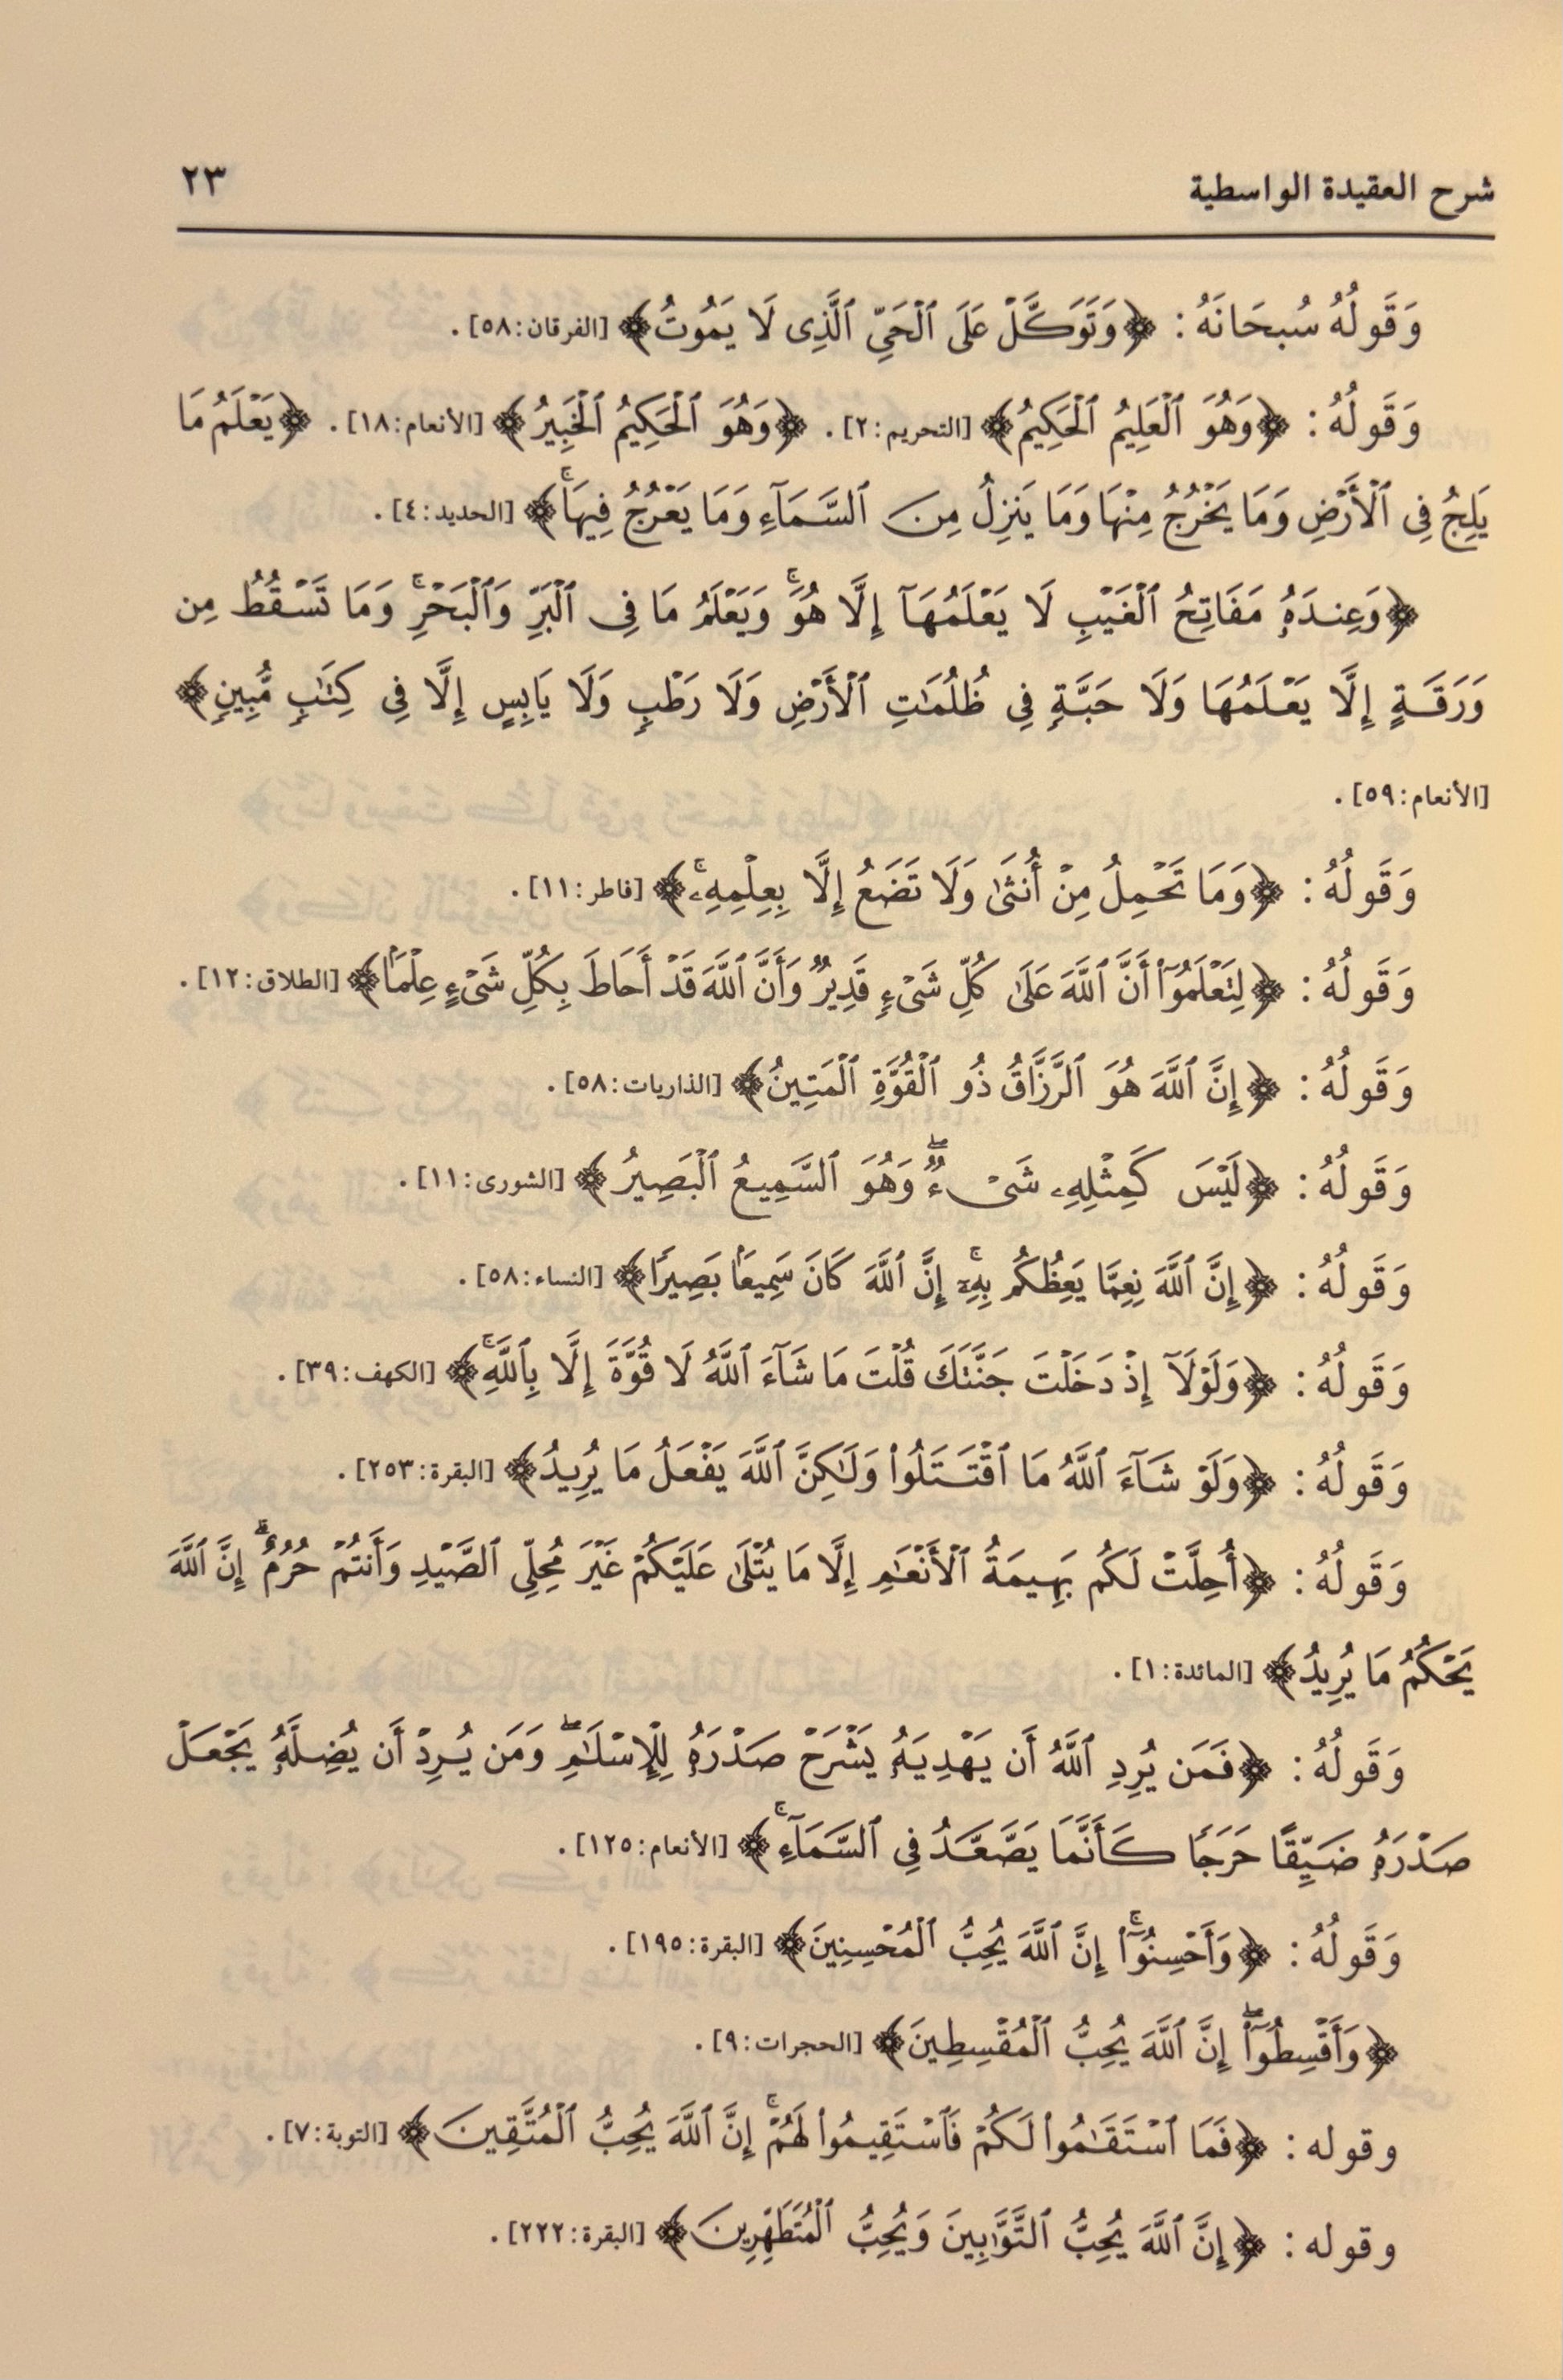 شرح العقيدة الواسطية ٢٣
وَقَولُهُ سُبحَانَهُ: ﴿وَتَوَكَّلْ عَلَى ٱلْحَيِّ ٱلَّذِى لَا يَمُوتُ﴾ [الفرقان:٥٨].
وَقَولُهُ: ﴿وَهُوَ ٱلْعَلِيمُ ٱلْحَكِيمُ﴾ [التحريم:٢]. ﴿وَهُوَ ٱلْحَكِيمُ ٱلْخَبِيرُ﴾ [الأنعام:١٨]. ﴿يَعْلَمُ مَا
يَلِجُ فِى ٱلْأَرْضِ وَمَا يَخْرُجُ مِنْهَا وَمَا يَنزِلُ مِنَ ٱلسَّمَآءِ وَمَا يَعْرُجُ فِيهَاۚ﴾ [الحديد:٤].
﴿وَعِندَهُۥ مَفَاتِحُ ٱلْغَيْبِ لَا يَعْلَمُهَآ إِلَّا هُوَۚ وَيَعْلَمُ مَا فِى ٱلْبَرِّ وَٱلْبَحْرِۚ وَمَا تَسْقُطُ مِن
وَرَقَةٍ إِلَّا يَعْلَمُهَا وَلَا حَبَّةٍ فِى ظُلُمَٰتِ ٱلْأَرْضِ وَلَا رَطْبٍ وَلَا يَابِسٍ إِلَّا فِى كِتَٰبٍ مُّبِينٍ﴾
[الأنعام:٥٩].
وَقَولُهُ: ﴿وَمَا تَحْمِلُ مِنْ أُنثَىٰ وَلَا تَضَعُ إِلَّا بِعِلْمِهِۦۚ﴾ [فاطر:١١].
وَقَولُهُ: ﴿لِتَعْلَمُوٓا۟ أَنَّ ٱللَّهَ عَلَىٰ كُلِّ شَىْءٍ قَدِيرٌ وَأَنَّ ٱللَّهَ قَدْ أَحَاطَ بِكُلِّ شَىْءٍ عِلْمًۢا﴾ [الطلاق:١٢].
وَقَولُهُ: ﴿إِنَّ ٱللَّهَ هُوَ ٱلرَّزَّاقُ ذُو ٱلْقُوَّةِ ٱلْمَتِينُ﴾ [الذاريات:٥٨].
وَقَولُهُ: ﴿لَيْسَ كَمِثْلِهِۦ شَىْءٌۖ وَهُوَ ٱلسَّمِيعُ ٱلْبَصِيرُ﴾ [الشورى:١١].
وَقَولُهُ: ﴿إِنَّ ٱللَّهَ نِعِمَّا يَعِظُكُم بِهِۦٓۚ إِنَّ ٱللَّهَ كَانَ سَمِيعًۢا بَصِيرًا﴾ [النساء:٥٨].
وَقَولُهُ: ﴿وَلَوْلَآ إِذْ دَخَلْتَ جَنَّتَكَ قُلْتَ مَا شَآءَ ٱللَّهُ لَا قُوَّةَ إِلَّا بِٱللَّهِۚ﴾ [الكهف:٣٩].
وَقَولُهُ: ﴿وَلَوْ شَآءَ ٱللَّهُ مَا ٱقْتَتَلُوا۟ وَلَٰكِنَّ ٱللَّهَ يَفْعَلُ مَا يُرِيدُ﴾ [البقرة:٢٥٣].
وَقَولُهُ: ﴿أُحِلَّتْ لَكُم بَهِيمَةُ ٱلْأَنْعَٰمِ إِلَّا مَا يُتْلَىٰ عَلَيْكُمْ غَيْرَ مُحِلِّى ٱلصَّيْدِ وَأَنتُمْ حُرُمٌۗ إِنَّ ٱللَّهَ
يَحْكُمُ مَا يُرِيدُ﴾ [المائدة:١].
وَقَولُهُ: ﴿فَمَن يُرِدِ ٱللَّهُ أَن يَهْدِيَهُۥ يَشْرَحْ صَدْرَهُۥ لِلْإِسْلَٰمِۖ وَمَن يُرِدْ أَن يُضِلَّهُۥ يَجْعَلْ
صَدْرَهُۥ ضَيِّقًا حَرَجًا كَأَنَّمَا يَصَّعَّدُ فِى ٱلسَّمَآءِۚ﴾ [الأنعام:١٢٥].
وَقَولُهُ: ﴿وَأَحْسِنُوٓا۟ۚ إِنَّ ٱللَّهَ يُحِبُّ ٱلْمُحْسِنِينَ﴾ [البقرة:١٩٥].
﴿وَأَقْسِطُوٓا۟ۖ إِنَّ ٱللَّهَ يُحِبُّ ٱلْمُقْسِطِينَ﴾ [الحجرات:٩].
وقوله: ﴿فَمَا ٱسْتَقَٰمُوا۟ لَكُمْ فَٱسْتَقِيمُوا۟ لَهُمْۚ إِنَّ ٱللَّهَ يُحِبُّ ٱلْمُتَّقِينَ﴾ [التوبة:٧].
وقوله: ﴿إِنَّ ٱللَّهَ يُحِبُّ ٱلتَّوَّٰبِينَ وَيُحِبُّ ٱلْمُتَطَهِّرِينَ﴾ [البقرة:٢٢٢].